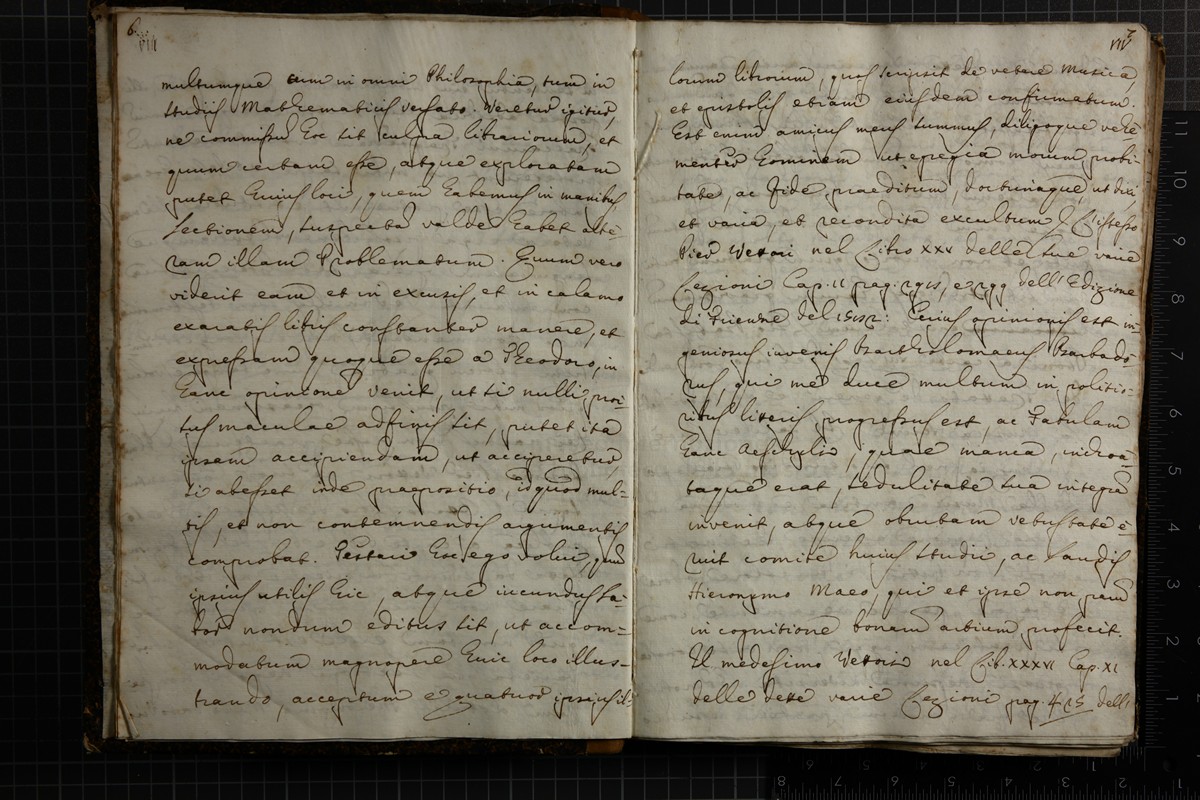 6.
VIII
multumque cum in omni Philosophia, tum in
studiis Mathematicis versato. Veretur igitur,
ne commissu hoc sit culpa librariorum, et
quum certam esse, atque exploratam
putet huius loci, quem habemus in manibus
lectionem, suspectam valde habet alte=
ram illam Problematum. Quum vero
viderit eam et in excusis, et in calamo
exaratis libris constanter manere, et
expressam quoque esse a Theodoro, in
hanc opinione venit, ut si nulli pror
sus maculae adfinis sit, putet ita
ipsem accipiendam, ut acciperetur,
si abesset inde praepositio, idquod mul=
tis, et non contemnendis argumentis
comprobat. Testari hoc ego volui, quum
ipsius utilis hic, atque iucundus la=
bor nondum editus sit, ut accom=
modatum magnopere huic loco illus=
trando, acceptum e quatuor ipsius il=
7
VIV
lorum librorum, quos scripsit de vetere Musica,
et epistolis etiam eiusdem confirmatum.
Est enim amicus meus summus, diligoque vehe
menter hominem ut egregia morum probi=
tate, ac fide praeditum, doctrinaque, ut dixi,
et varia, et recondita excultum. L'istesso
Pier Vettori nel Libro XXXV delle sue varie
Lezioni Cap. II pag. 298, e 299 dell'Edizione
di Firenze del 1582: Cuius opinionis est in=
geniosus iuvenis Bartholomaeus Barbado=
rus, qui me duce multum in politio=
ribus literis progressus est, ac Fabulam
hanc Aeschylis, quae manca, indroc=
taque erat, sedulitate sua integra
invenit, atque obrutam vetustate e=
ruit comite huius studii, ac laudis
Hieronymo Maeo, qui et ipse non parum
in cognitione bonarum artium profecit.
Il medesimo Vettori nel Lib. XXXVI Cap. XI
delle dette varie Lezioni pag. 415 dell'